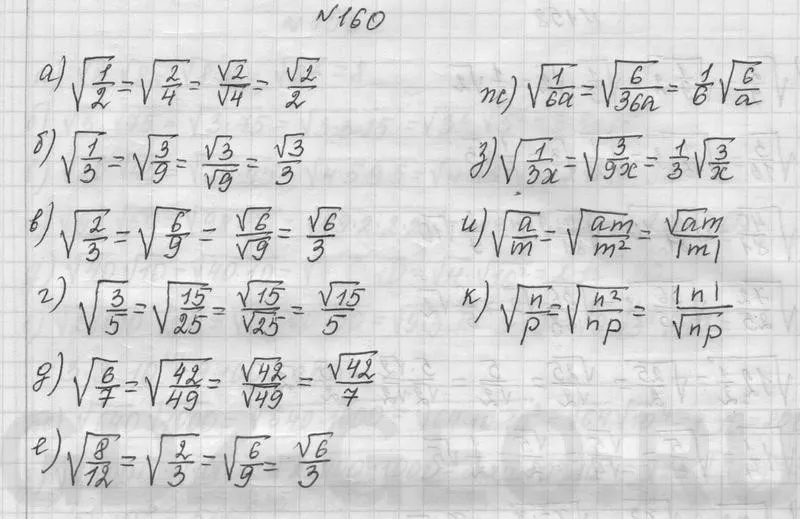 №160
а) √(1/2) = √(2/4) = √2/√4 = √2/2
б) √(1/3) = √(3/9) = √3/√9 = √3/3
в) √(2/3) = √(6/9) = √6/√9 = √6/3
г) √(3/5) = √(15/25) = √15/√25 = √15/5
д) √(6/7) = √(42/49) = √42/√49 = √42/7
е) √(8/12) = √(2/3) = √(6/9) = √6/3
ж) √(1/6a) = √(6/36a) = 1/6 √(6/a)
з) √(1/3x) = √(3/9x) = 1/3 √(3/x)
и) √(a/m) = √(am/m²) = √am/|m|
к) √(n/p) = √(n²/np) = |n|/√np